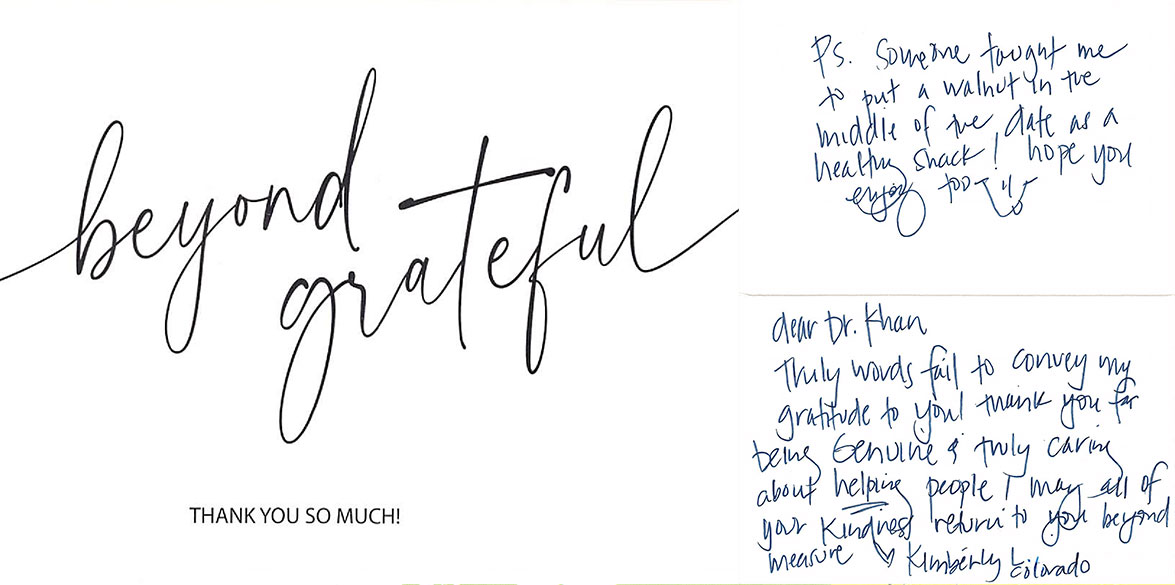 beyond
grateful
THANK YOU SO MUCH!
Ps. Someone taught me
to put a walnut in the
middle of the date as a
healthy snack! hope you
enjoy too
dear Dr. Khan
Truly words fail to convey my
gratitude to you! thank you for
being Genuine & truly caring
about helping people! may all of
your kindness return to you beyond
measure ♡ Kimberly L
Colorado